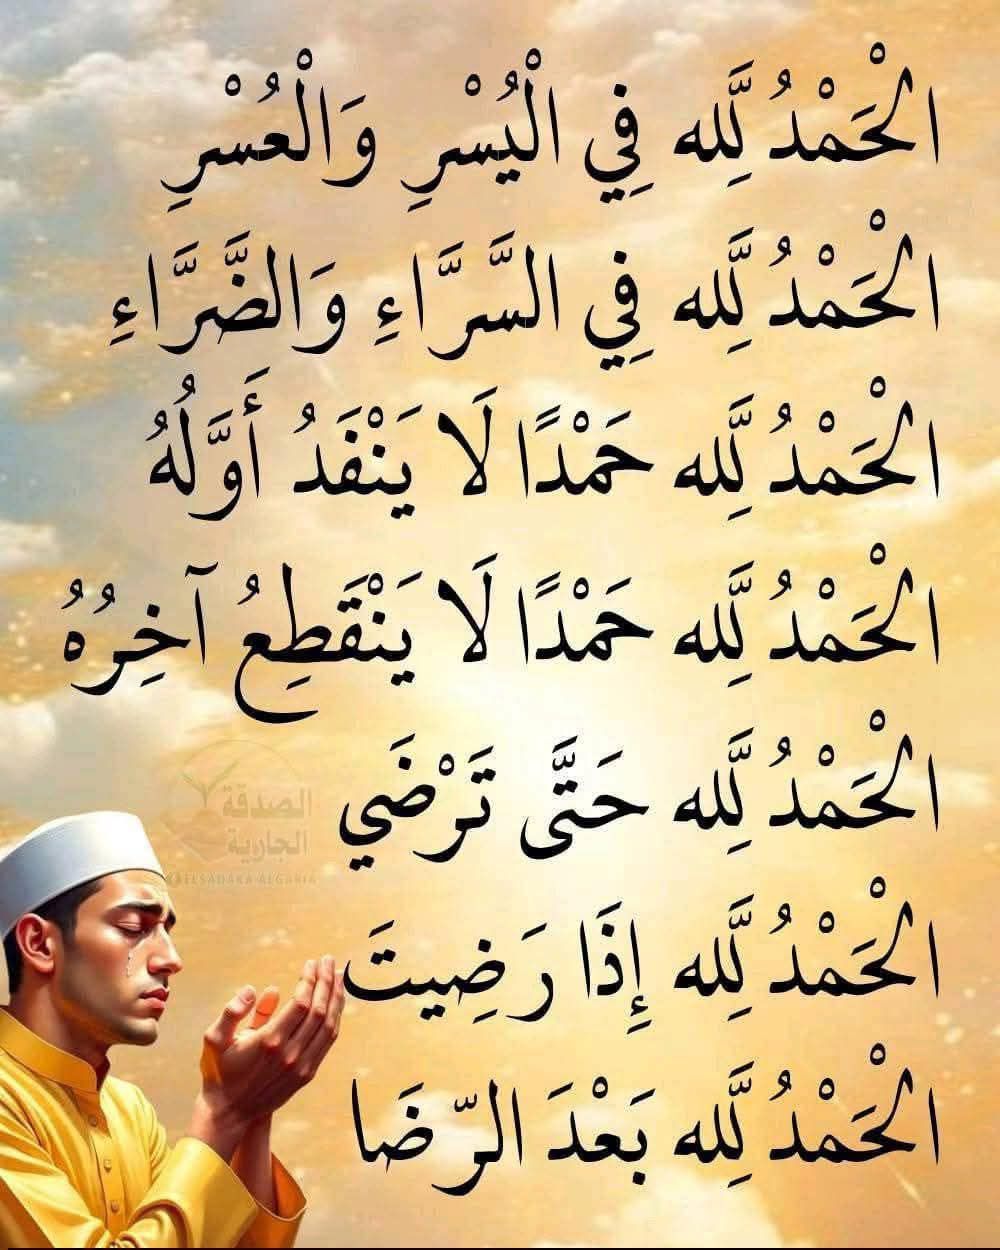 الْحَمْدُ لِلَّهِ فِي الْيُسْرِ وَالْعُسْرِ
الْحَمْدُ لِلَّهِ فِي السَّرَّاءِ وَالضَّرَّاءِ
الْحَمْدُ لِلَّهِ حَمْدًا لَا يَنْفَدُ أَوَّلُهُ
الْحَمْدُ لِلَّهِ حَمْدًا لَا يَنْقَطِعُ آخِرُهُ
الْحَمْدُ لِلَّهِ حَتَّى تَرْضَي
الْحَمْدُ لِلَّهِ إِذَا رَضِيتَ
الْحَمْدُ لِلَّهِ بَعْدَ الرِّضَا
الصدقة
الجارية
ELSADAKA ALGARIA